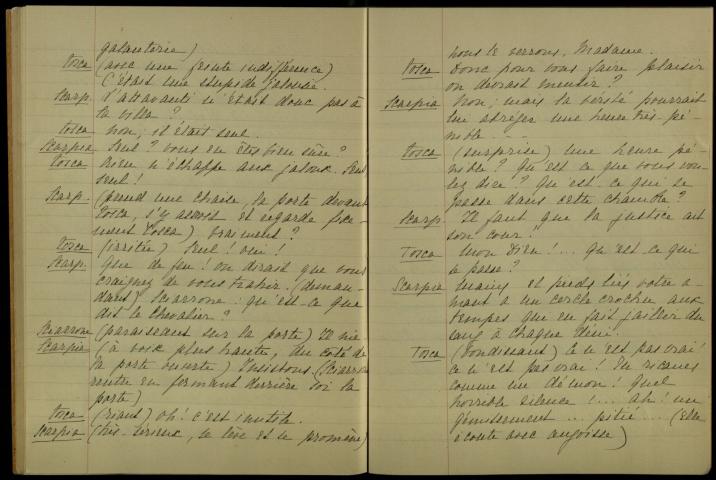 galanterie)
Tosca (avec une feinte indifférence)
C'était une stupide jalousie.
Scarp. L'Attavanti n'était donc pas à
la villa ?
Tosca Non; il était seul.
Scarpia Seul ? vous en êtes bien sûre ?
Tosca Rien n'échappe aux jaloux. Seul
seul !
Scarp. (prend une chaise, la porte devant
Tosca, s'y assoit et regarde fixe-
ment Tosca) Vraiment ?
Tosca (irritée) Seul ! oui !
Scarp. Que de feu ! on dirait que vous
craignez de vous trahir. (deman-
dant) Sciarrone : qu'est-ce que
dit le Chevalier ?
Sciarrone (paraissant sur la porte) Il nie
Scarpia (à voix plus haute, du côté de
la porte ouverte) Insistons. (Sciarrone
rentre en fermant derrière soi la
porte)
Tosca (riant) Oh ! c'est inutile.
Scarpia (très-sérieux, se lève et se promène)
nous le verrons, Madame.
Tosca Donc pour vous faire plaisir
on devrait mentir ?
Scarpia Non; mais la vérité pourrait
lui abréger une heure très-pé-
nible...
Tosca (surprise) Une heure pé-
nible ? Qu'est-ce que vous vou-
lez dire ? Qu'est-ce qui se
passe dans cette chambre ?
Scarp. Il faut que la justice ait
son cour !
Tosca Mon Dieu !... Qu'est-ce qui
se passe ?
Scarpia Mains et pieds liés votre a-
mant a un cercle crochu aux
tempes que en fait jaillir du
sang à chaque déni.
Tosca (bondissant) Ce n'est pas vrai !
Ce n'est pas vrai ! Tu ricanes
comme un démon ! Quel
horrible silence !... Ah ! un
gémissement... pitié... (Elle
écoute avec angoisse)